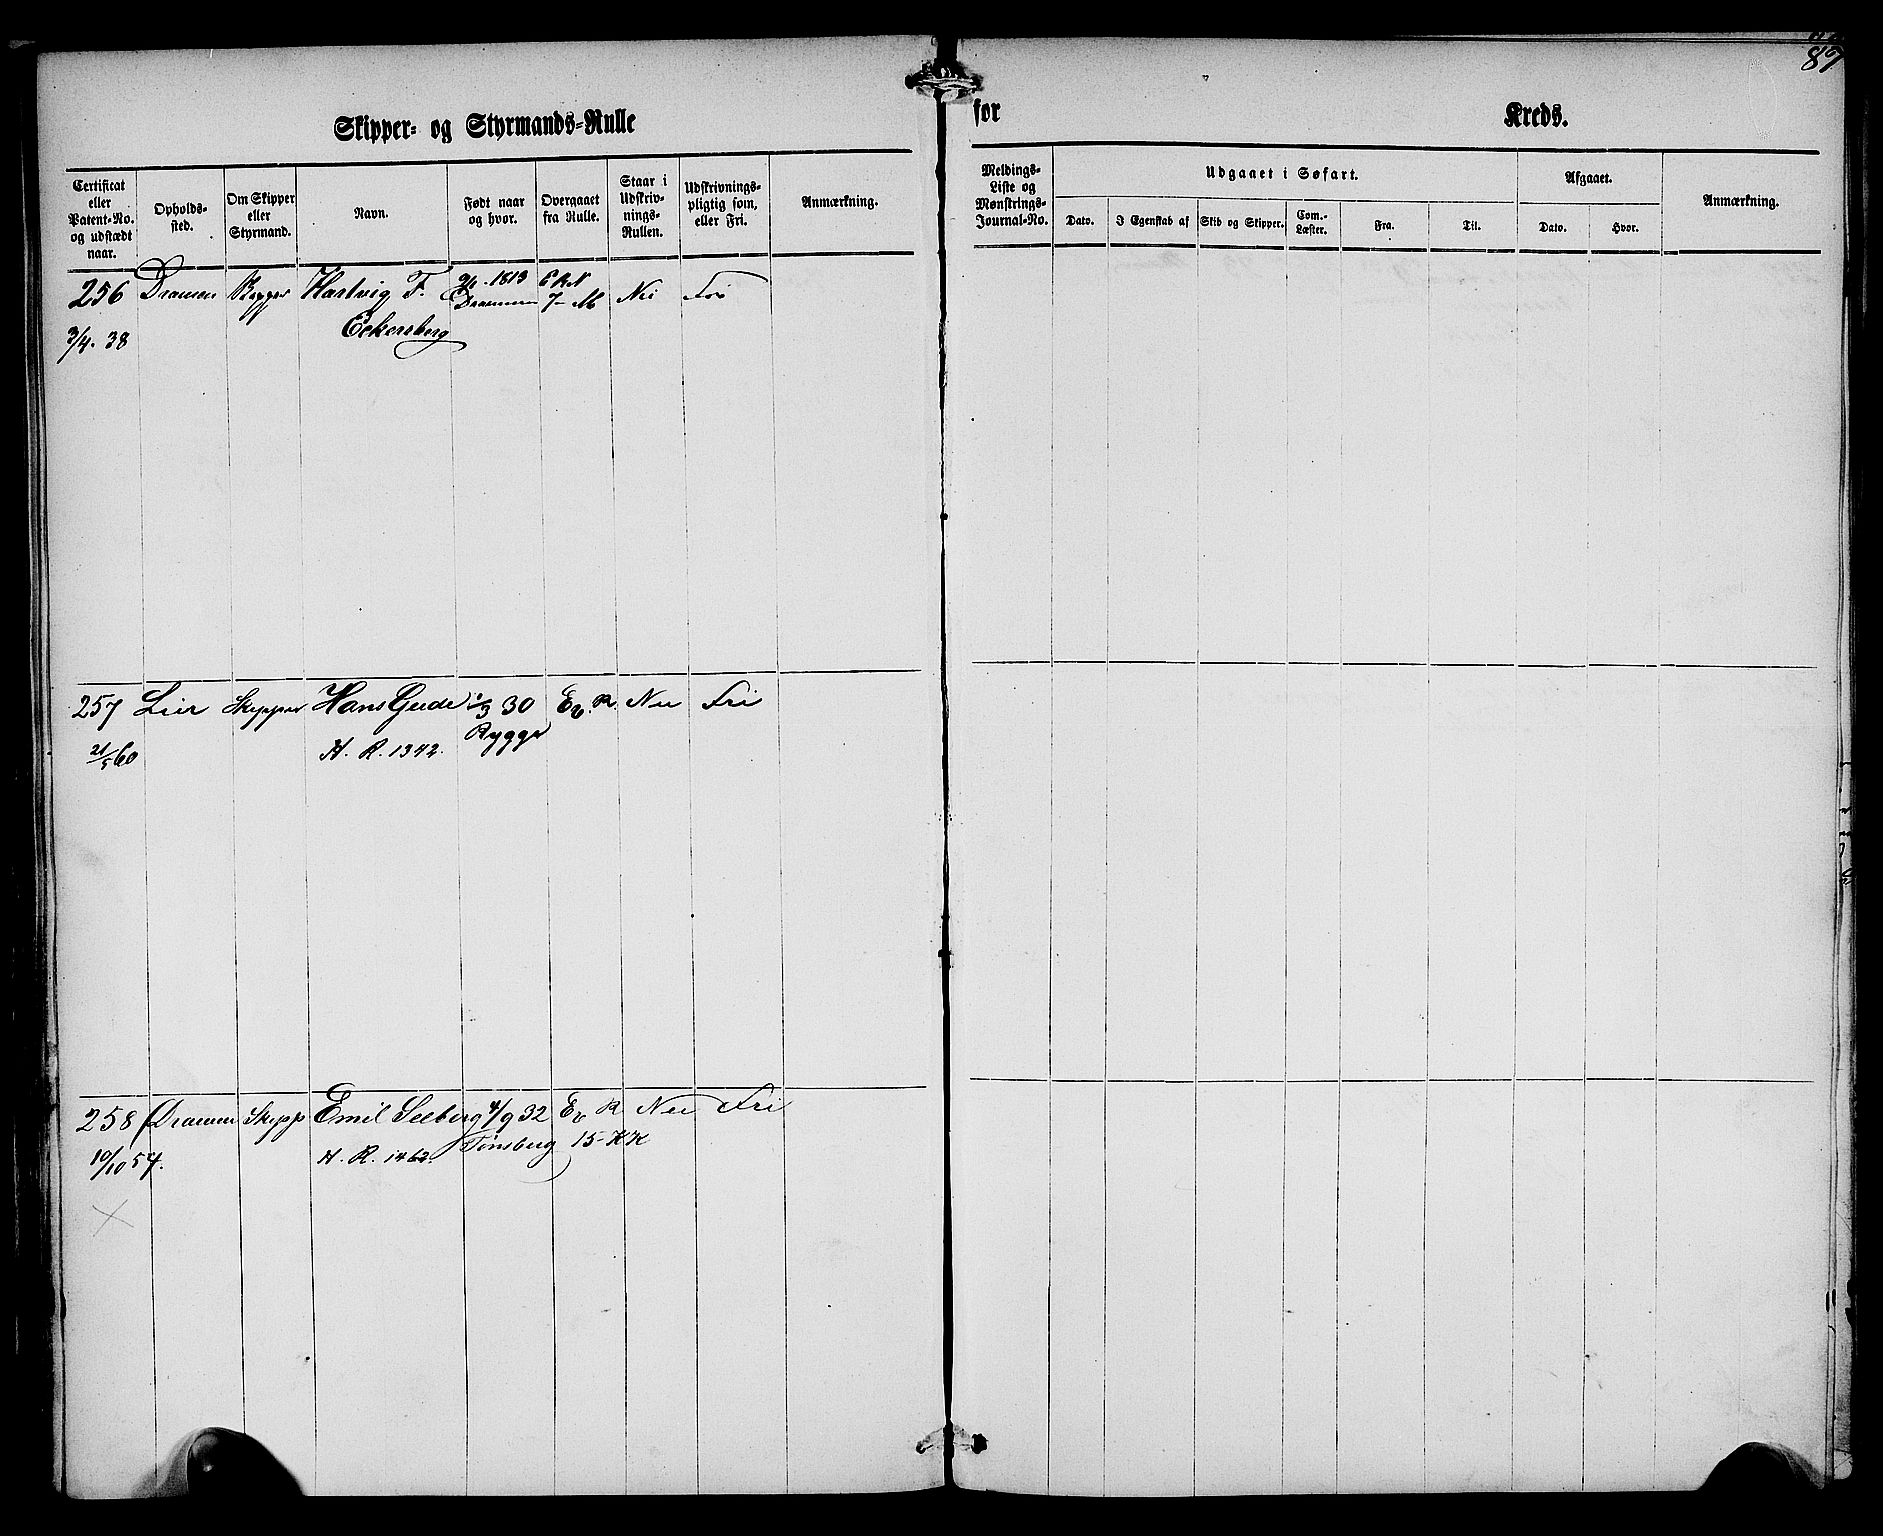 87
Skipper- og Styrmands-Rulle
for Kreds.
Certificat eller Patent-No. og udstædt naar.
Opholds-sted.
Om Skipper eller Styrmand.
Navn.
Født naar og hvor.
Overgaaet fra Rulle.
Staar i Udskriv-nings-Rullen.
Udskrivnings-pligtig som, eller Fri.
Anmærkning.
Meldings-Liste og Mønstrings-Journal-No.
Udgaaet i Søfart.
Dato. I Egenskab af Skib og Skipper. Com.-Læster. Fra. Til.
Afgaaet.
Dato. Hvor.
Anmærkning.
256 Dramen Hartvig F. 1813 E R N Nei Fri
3/4. 38 Eckersberg Drammen 7- M
257 Lier Skipper Hans Gude 1/3 30 Ev. R. Nei Fri
21/5 60 H. R. 1342. Rygge
258 Dramen Skipp Emil Seeberg 4/9 32 Ev R Nei Fri
10/10 54. H. R. 1462. Tønsberg 15- KK